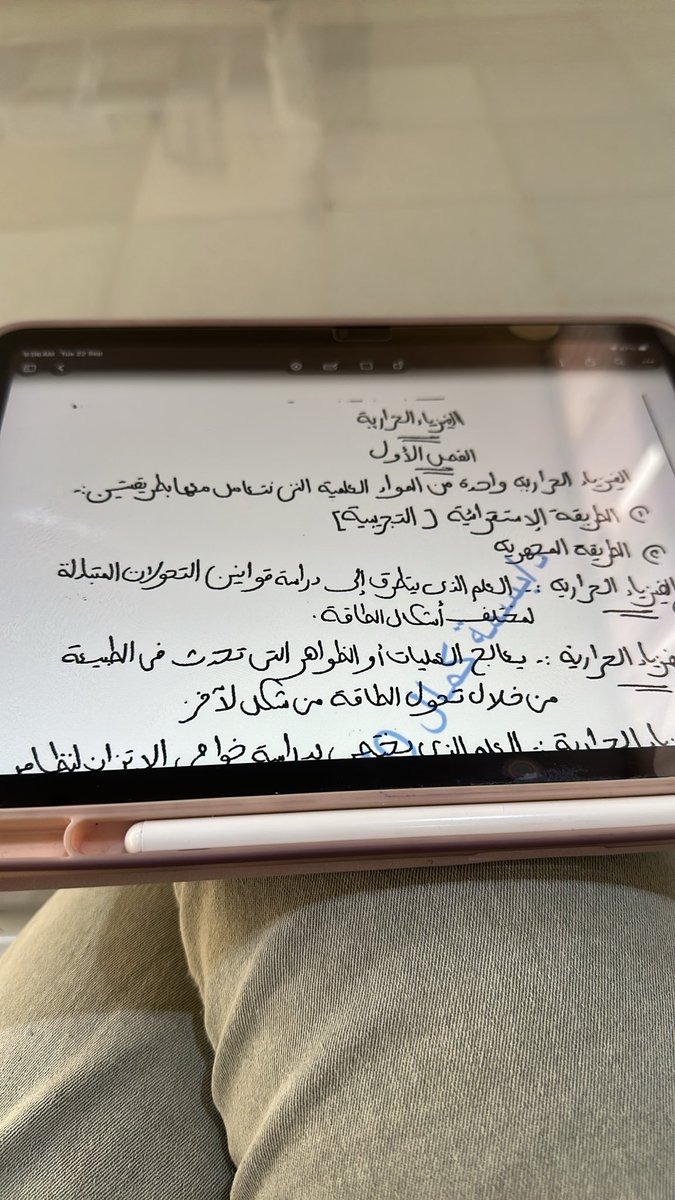 9:06 AM Tue 22 Sep
الفيزياء الحرارية
الفصل الأول
الفيزياء الحرارية واحدة من المواد العلمية التي نتعامل معها بطريقتين :-
① الطريقة الإستقرائية [التجريبية]
② الطريقة المجهرية
الفيزياء الحرارية :- العلم الذي يتطرق إلى دراسة قوانين التحولات المتبادلة
لمختلف أشكال الطاقة .
الحرارية :- يعالج العمليات أو الظواهر التي تحدث في الطبيعة
من خلال تحول الطاقة من شكل لآخر
الحرارية :- العلم الذي يختص بدراسة خواص الاتزان